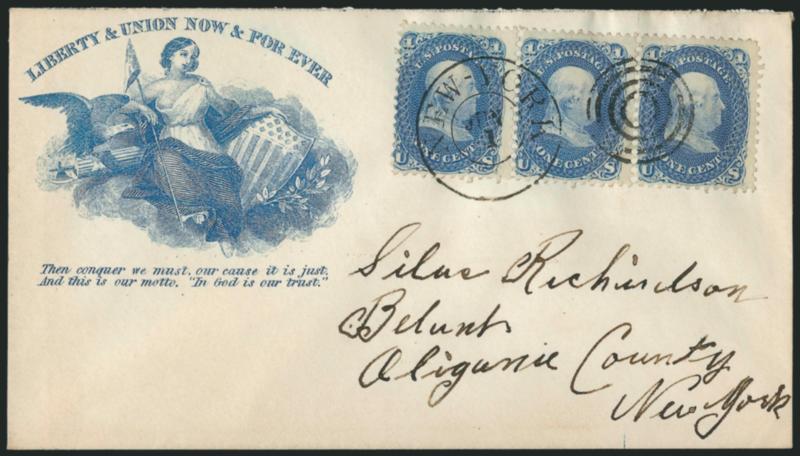 LIBERTY & UNION NOW & FOR EVER
Then conquer we must, our cause it is just,
And this is our motto. "In God is our trust."
1 U.S. POSTAGE 1
ONE CENT
U S
1 U.S. POSTAGE 1
ONE CENT
U S
1 U.S. POSTAGE 1
ONE CENT
U S
NEW-YORK
1
Silas Richardson
Belunt
Oliganie County
New York